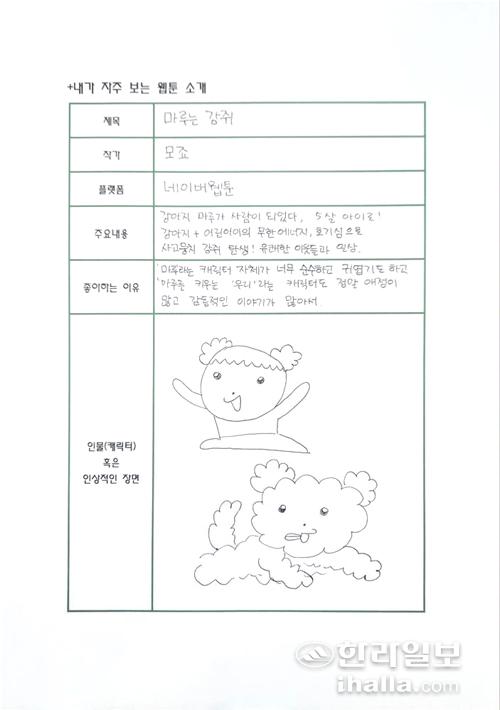 +내가 자주 보는 웹툰 소개
제목
마루는 강쥐
작가
모죠
플랫폼
네이버웹툰
주요내용
강아지 마루가 사람이 되었다, 5살 아이로!
강아지 + 어린아이의 무한에너지, 호기심으로
사고뭉치 강쥐 탄생! 유쾌한 이웃들과 일상.
좋아하는 이유
'마루'라는 캐릭터 자체가 너무 순수하고 귀엽기도 하고
'마루'를 키우는 '우리'라는 캐릭터도 정말 애정이
많고 감동적인 이야기가 많아서
인물(캐릭터)
혹은
인상적인 장면
한라일보
ihalla.com